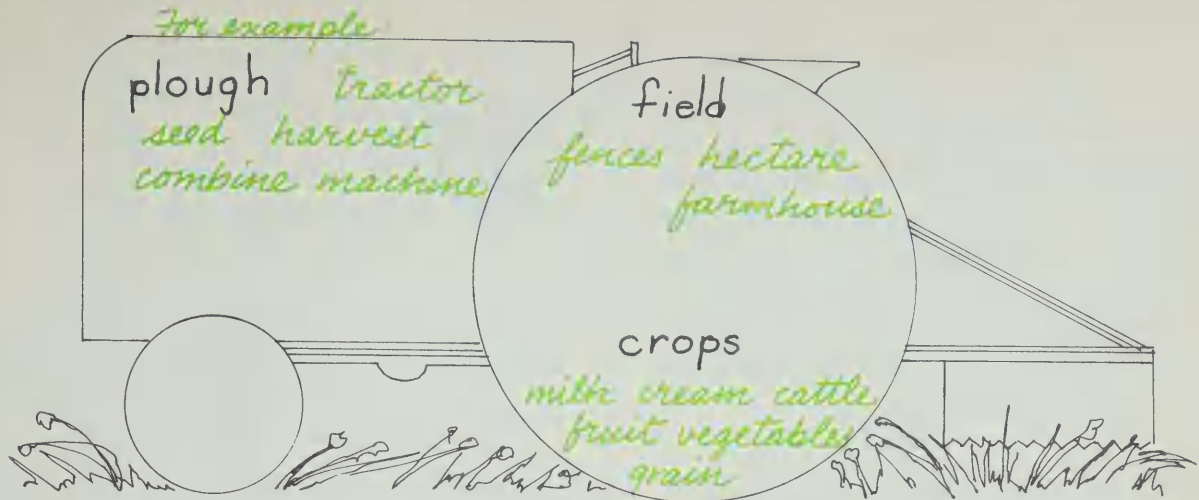 For example
plough tractor
seed harvest
combine machine
field
fences hectare
farmhouse
crops
milk cream cattle
fruit vegetables
grain